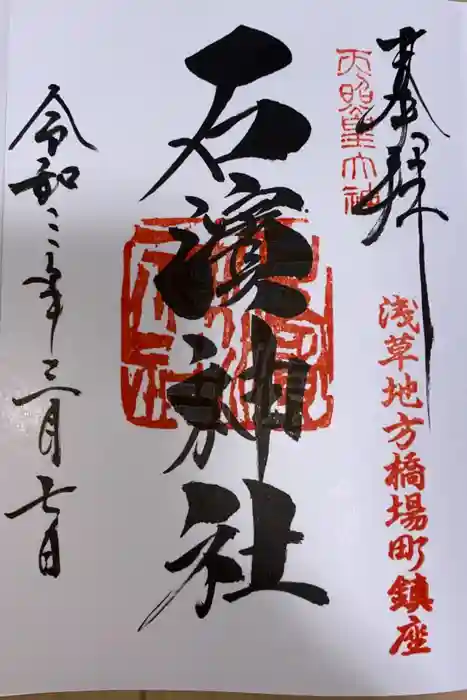 奉拝
天照皇大神
浅草地方橋場町鎮座
石濱神社
令和二年三月七日